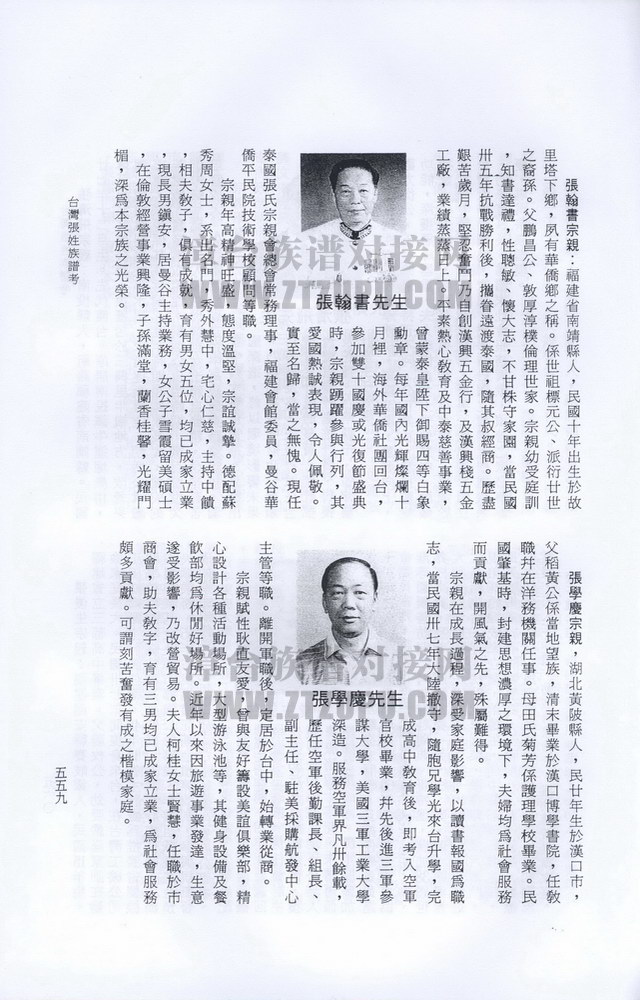 張翰書宗親：福建省南靖縣人，民國十年出生於故
里塔下鄉，夙有華僑鄉之稱。係世祖標元公、派衍廿世
之裔孫。父鵬昌公、敦厚淳樸倫理世家。宗親幼受庭訓
，知書達禮，性聰敏、懷大志，不甘株守家園，當民國
卅五年抗戰勝利後，攜眷遠渡泰國，隨其叔經商。歷盡
艱苦歲月，堅忍奮鬥乃自創漢興五金行，及漢興棧五金
工廠，業績蒸蒸日上。平素熱心敎育及中泰慈善事業，
曾蒙泰皇陛下御賜四等白象
勳章。每年國內光輝燦爛十
月裡，海外華僑社團回台，
參加雙十國慶或光復節盛典
時，宗親踴躍參與行列，其
愛國熱誠表現，令人佩敬。
實至名歸，當之無愧。現任
張翰書先生
泰國張氏宗親會總會常務理事，福建會館委員，曼谷華
僑平民院技術學校顧問等職。
宗親年高精神旺盛，態度溫堅，宗誼誠摯。德配蘇
秀周女士，系出名門，秀外慧中，宅心仁慈，主持中饋
，相夫敎子，俱有成就，育有男女五位，均已成家立業
，現長男鎭安，居曼谷主持業務，女公子雪霞留美碩士
，在倫敦經營事業興隆，子孫滿堂，蘭香桂馨，光耀門
楣，深爲本宗族之光榮。
張學慶宗親，湖北黃陂縣人，民廿年生於漢口市，
父稻黃公係當地望族，清末畢業於漢口博學書院，任敎
職幷在洋務機關任事。母田氏菊芳係護理學校畢業。民
國肇基時，封建思想濃厚之環境下，夫婦均爲社會服務
而貢獻，開風氣之先，殊屬難得。
宗親在成長過程，深受家庭影響，以讀書報國爲職
志，當民國卅七年大陸撤守，隨胞兄學光來台升學，完
成高中敎育後，即考入空軍
官校畢業，幷先後進三軍參
謀大學，美國三軍工業大學
深造。服務空軍界凡卅餘載，
歷任空軍後勤課長、組長、
副主任、駐美採購航發中心
張學慶先生
主管等職。離開軍職後，定居於台中，始轉業從商。
宗親賦性耿直友愛，曾與友好籌設美誼俱樂部，精
心設計各種活動場所，大型游泳池等，其健身設備及餐
飲部均爲休閒好場所。近年以來因旅遊事業發達，生意
遂受影響，乃改營貿易。夫人柯桂女士賢慧，任職於市
商會，助夫敎字，育有三男均已成家立業，爲社會服務
頗多貢獻。可謂刻苦奮發有成之楷模家庭。
台灣張姓族譜考
五五九
漳台族谱对接网
WWW.ZTZUPU.COM
漳台族谱对接网
WWW.ZTZUPU.COM